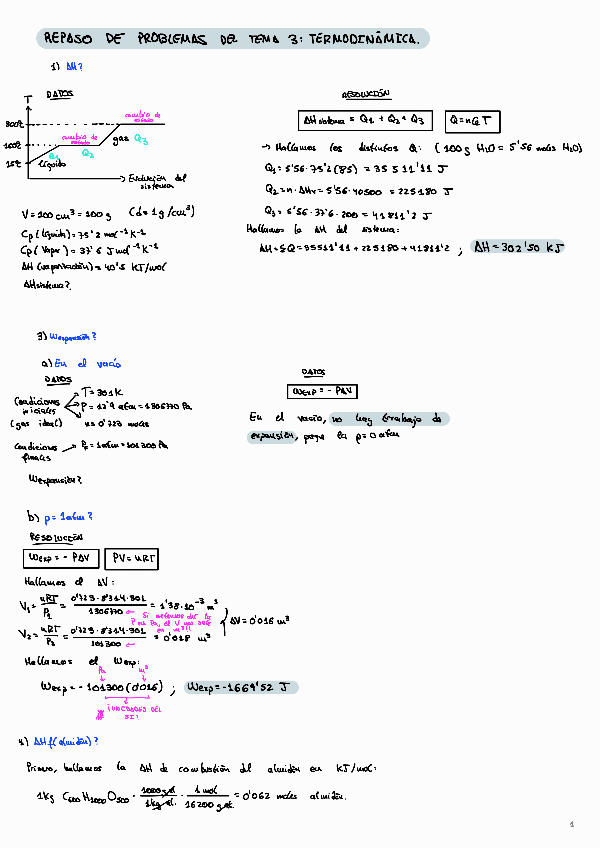 REPASO DE PROBLEMAS DEL TEMA 3: TERMODINÁMICA.
1) ΔH?
DATOS
T
300ºC
100ºC
15ºC
cambio de estado
cambio de estado
Q1
Q2
gas Q3
líquido
Evolución del sistema
V = 100 cm³ = 100 g (d = 1 g/cm³)
Cp (líquido) = 75'2 mol⁻¹K⁻¹
Cp (vapor) = 37'6 J mol⁻¹K⁻¹
ΔH (vaporización) = 40'5 KJ/mol
ΔHsistema?
RESOLUCIÓN
ΔHsistema = Q1 + Q2 + Q3
→ Hallamos los distintos Q: (100g H2O = 5'56 moles H2O)
Q1 = 5'56·75'2(85) = 35511'11 J
Q2 = n·ΔHv = 5'56·40500 = 225180 J
Q3 = 5'56·37'6·200 = 41811'2 J
Hallamos la ΔH del sistema:
ΔH = ΣQ = 35511'11 + 225180 + 41811'2 ; ΔH = 302'50 KJ
3) Wexpansión?
a) En el vacío
DATOS
Condiciones iniciales (gas ideal)
T = 301 K
P = 12'9 atm = 1306770 Pa
n = 0'723 moles
Condiciones finales
P2 = 1 atm = 101300 Pa
Wexpansión?
DATOS
Wexp = - PΔV
En el vacío, no hay trabajo de
expansión, porque la p = 0 atm
b) p = 1 atm?
RESOLUCIÓN
Wexp = - PΔV
PV = nRT
Hallamos el ΔV:
V1 = nRT/P1 = 0'723·8'314·301/1306770 = 1'38·10⁻³ m³
V2 = nRT/P2 = 0'723·8'314·301/101300 = 0'018 m³
ΔV = 0'016 m³
Hallamos el Wexp:
Pa m³
Wexp = - 101300(0'016) ; Wexp = -1669'52 J
¡UNIDADES DEL SI!
4) ΔHf(almidón)?
Primero, hallamos la ΔH de combustión del almidón en KJ/mol:
1kg C600H1000O500 · 1000 g al./1kg al. · 1 mol/16200 g al. = 0'062 moles almidón.
1